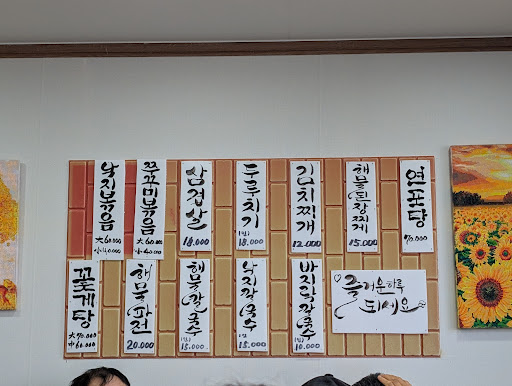 낙지볶음
大 60.000
小 40.000
쭈꾸미볶음
大 60.000
小 40.000
삼겹살
18.000
두루치기
(1인) 18.000
김치찌개
12.000
해물된장찌게
15.000
연포탕
70.000
꽃게탕
大 70.000
中 60.000
해물파전
20.000
해물칼국수
(1인) 15.000
낙지칼국수
(1인) 15.000
바지락칼국수
(1인) 10.000
즐거운하루
되세요